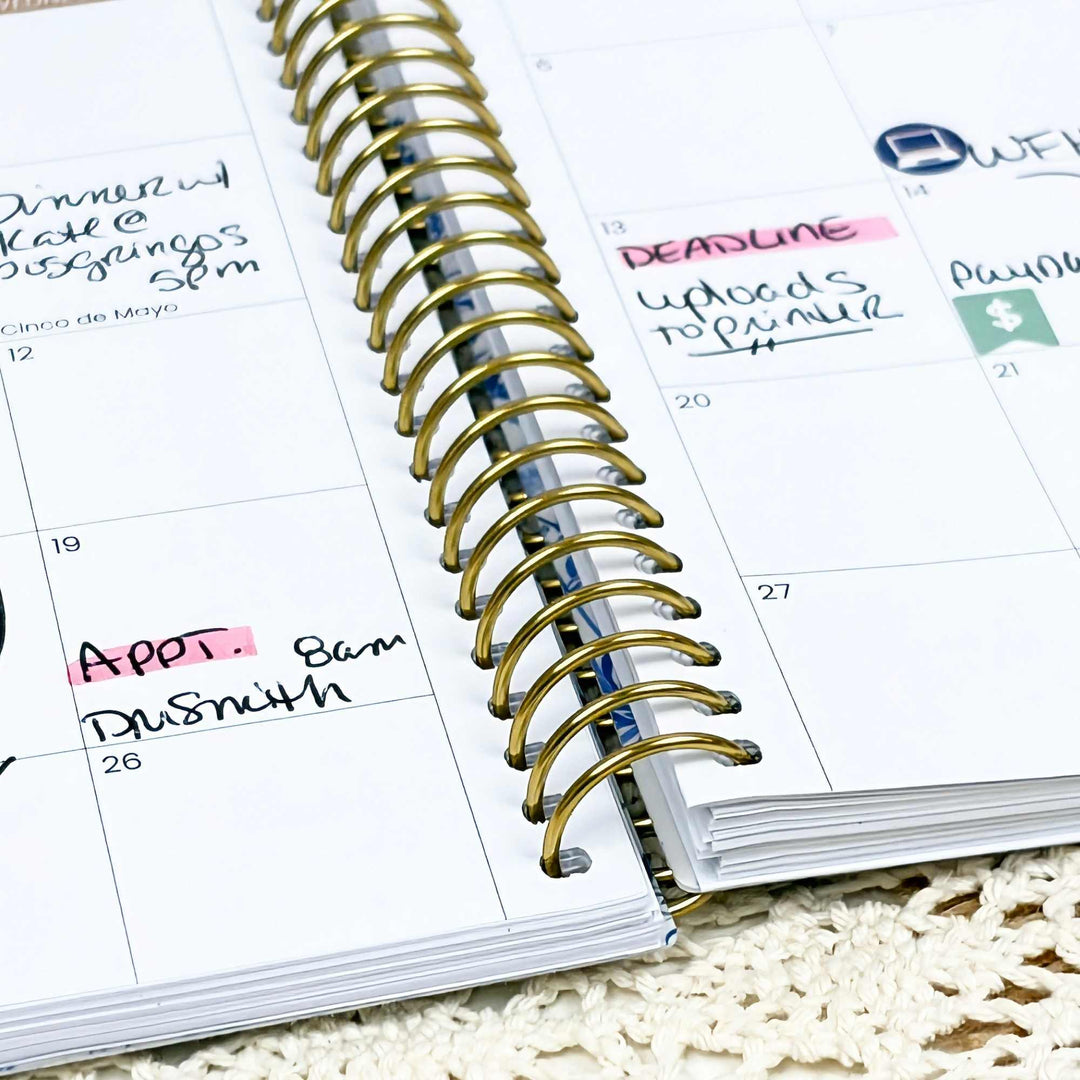 Dinner w/
Kate @
5pm
Cinco de Mayo
12
19
APPT. 8am
Dr. Smith
26
6
7
WFH
13
DEADLINE
uploads
to printer
14
$
20
21
27